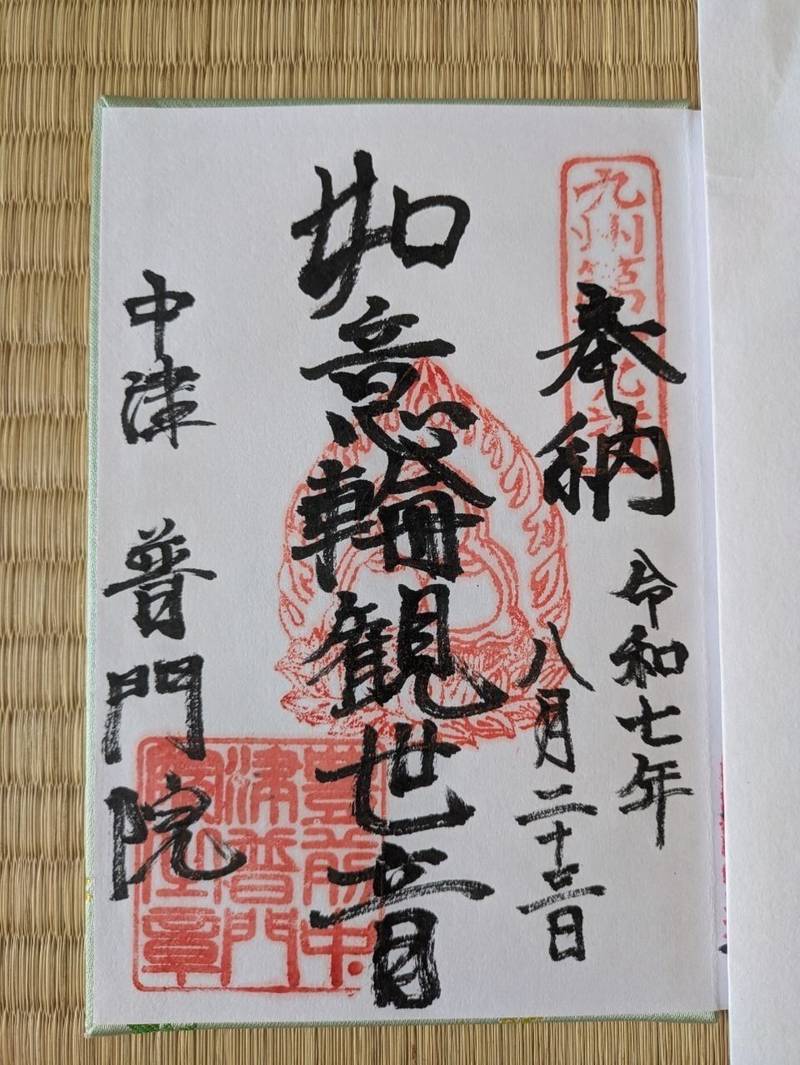 九州第
奉納
令和七年
八月二十三日
如意輪観世音
中津 普門院
豊前中
津普門